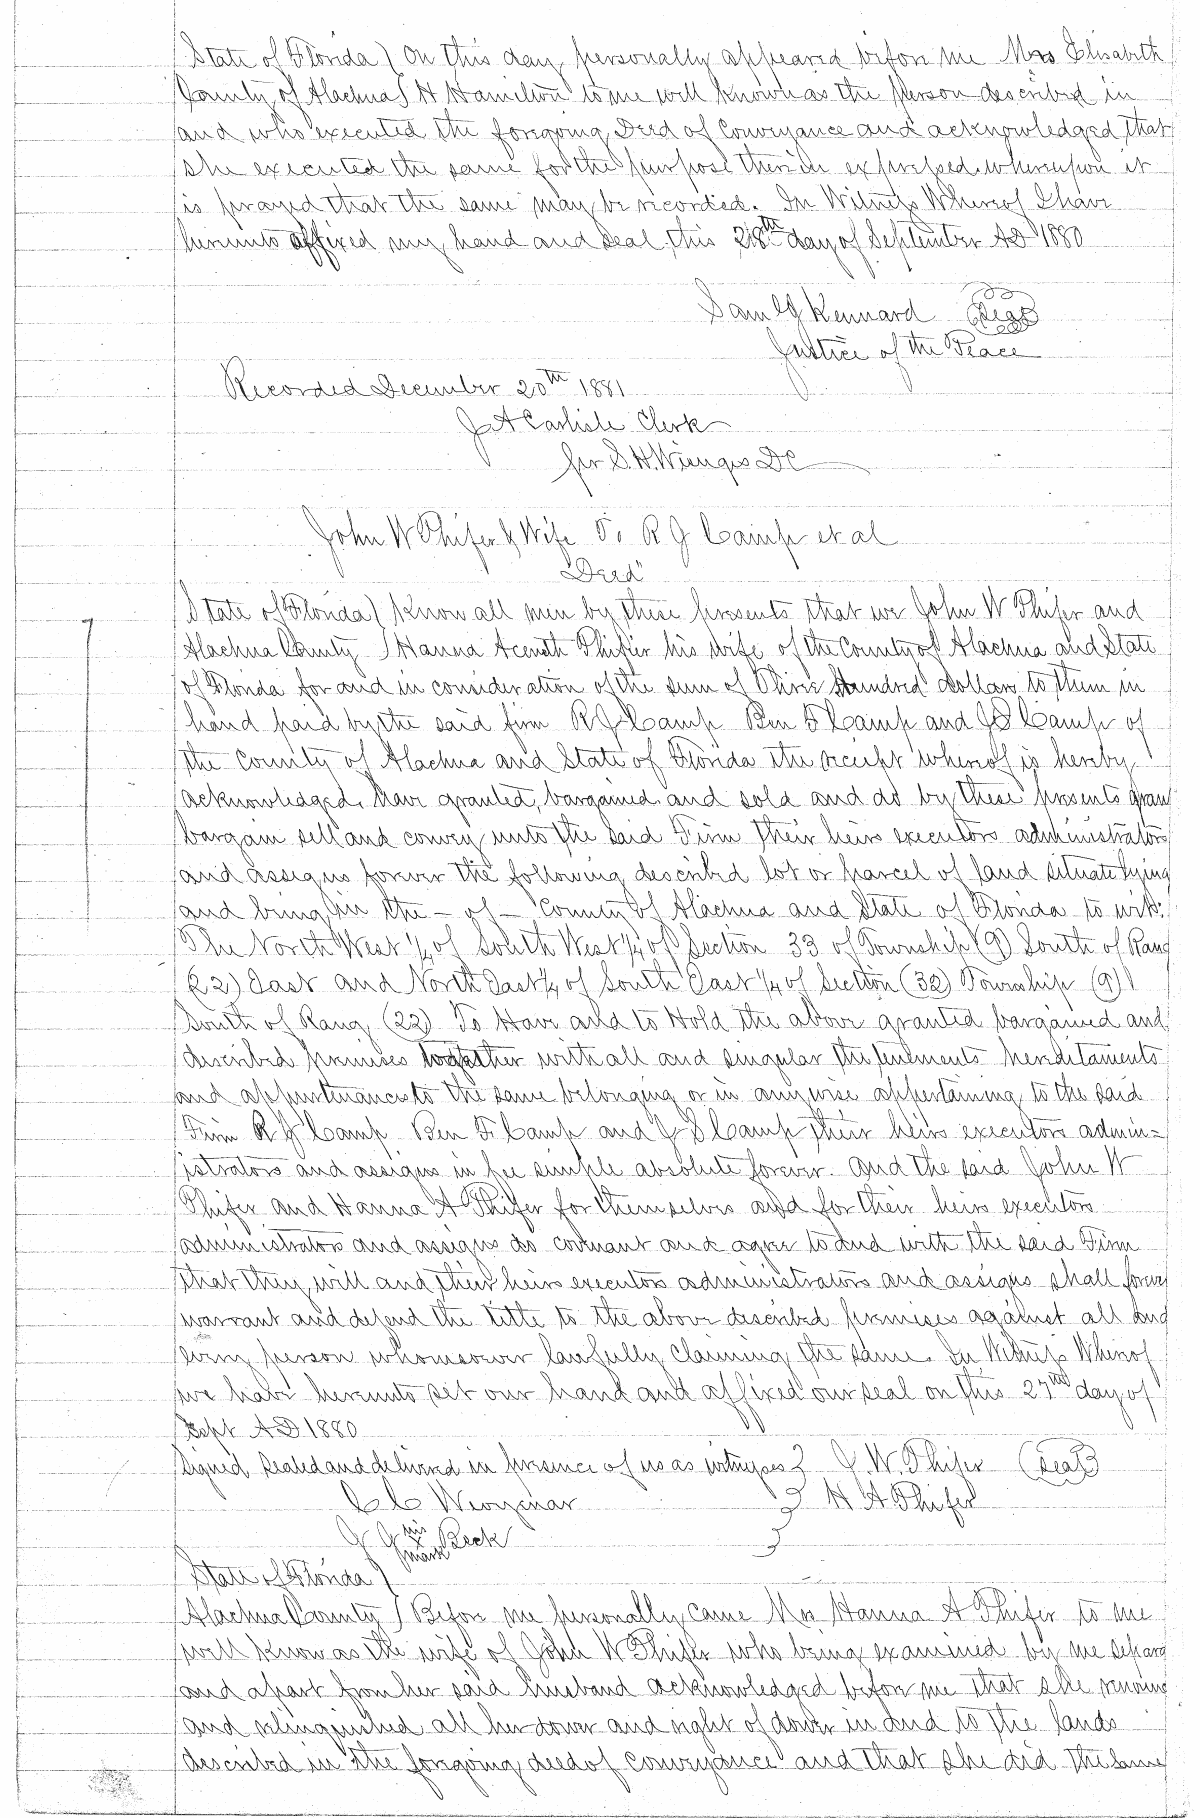 State of Florida) On this day personally appeared before me Mrs Elisabeth
County of Alachua) H Hamilton to me well known as the person described in
and who executed the foregoing Deed of Conveyance and acknowledged that
she executed the same for the purpose therein expressed whereupon it
is prayed that the same may be recorded. In Witness Whereof I have
hereunto affixed my hand and seal this 28th day of September AD 1880
Sam G Kennard (Seal)
Justice of the Peace
Recorded December 20th 1881
J A Carlisle Clerk
per S. H. Wienges DC
John W Phifer & Wife To R J Camp et al
"Deed"
State of Florida) Know all men by these presents that we John W Phifer and
Alachua County ) Hanna Aceneth Phifer his wife of the County of Alachua and State
of Florida for and in consideration of the sum of Three Hundred dollars to them in
hand paid by the said firm R J Camp Ben F Camp and J S Camp of
the County of Alachua and State of Florida the receipt whereof is hereby
acknowledged, have granted, bargained and sold and do by these presents gran
bargain sell and convey unto the said Firm their heirs executors administrators
and assigns forever the following described lot or parcel of land situate lying
and being in the - of - County of Alachua and State of Florida to wit:
The North West 1/4 of South West 1/4 of Section 33 of Township (9) South of Rang
(22) East and North East 1/4 of South East 1/4 of Section (32) Township (9)
South of Rang (22) To Have and to Hold the above granted bargained and
described premises together with all and singular the tenements hereditaments
and appurtenances to the same belonging or in anywise appertaining to the said
Firm R J Camp Ben F Camp and J S Camp their heirs executors admin=
istrators and assigns in fee simple absolute forever. And the said John W
Phifer and Hanna A Phifer for themselves and for their heirs executors
administrators and assigns do covenant and agree to and with the said Firm
that they will and their heirs executors administrators and assigns shall forever
warrant and defend the title to the above described premises against all and
every person whomsoever lawfully claiming the same. In Witness Whereof
we have hereunto set our hand and affixed our seal on this 27th day of
Sept AD 1880
Signed sealed and delivered in presence of us as witnesses } J. W. Phifer (Seal)
C C } H A Phifer
J J his x mark Beck }
State of Florida )
Alachua County ) Before me personally came Mrs Hanna A Phifer to me
well know as the wife of John W Phifer who being examined by me separa
and apart from her said husband acknowledged before me that she renounc
and relinquished all her dower and right of dower in and to the lands
described in the foregoing deed of conveyance and that she did the same